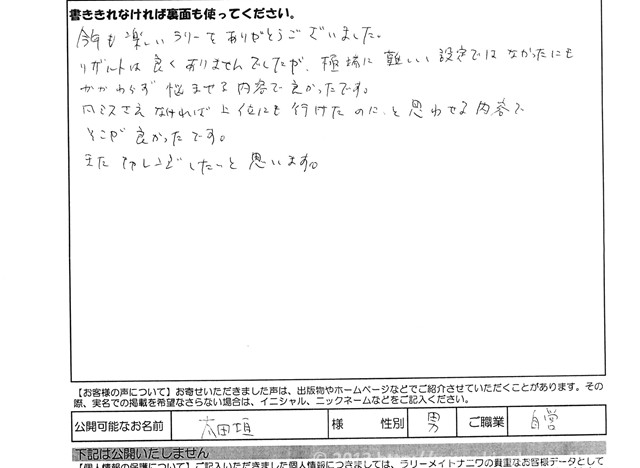 書ききれなければ裏面も使ってください。
今年も楽しいラリーをありがとうございました。
リザルトは良くありませんでしたが、極端に難しいい設定ではなかったにも
かかわらず悩ませる内容で良かったです。
凡ミスさえなければ上位にも行けたのに、と思わせる内容で
そこが良かったです。
またチャレンジしたいと思います。
【お客様の声について】お寄せいただきました声は、出版物やホームページなどでご紹介させていただくことがあります。その
際、実名での掲載を希望なさらない場合は、イニシャル、ニックネームなどをご記入ください。
公開可能なお名前 太田垣 様 性別 男 ご職業 自営
下記は公開いたしません
【個人情報の保護について】ご記入いただきました個人情報につきましては、ラリーメイトナニワの貴重なお客様データとして